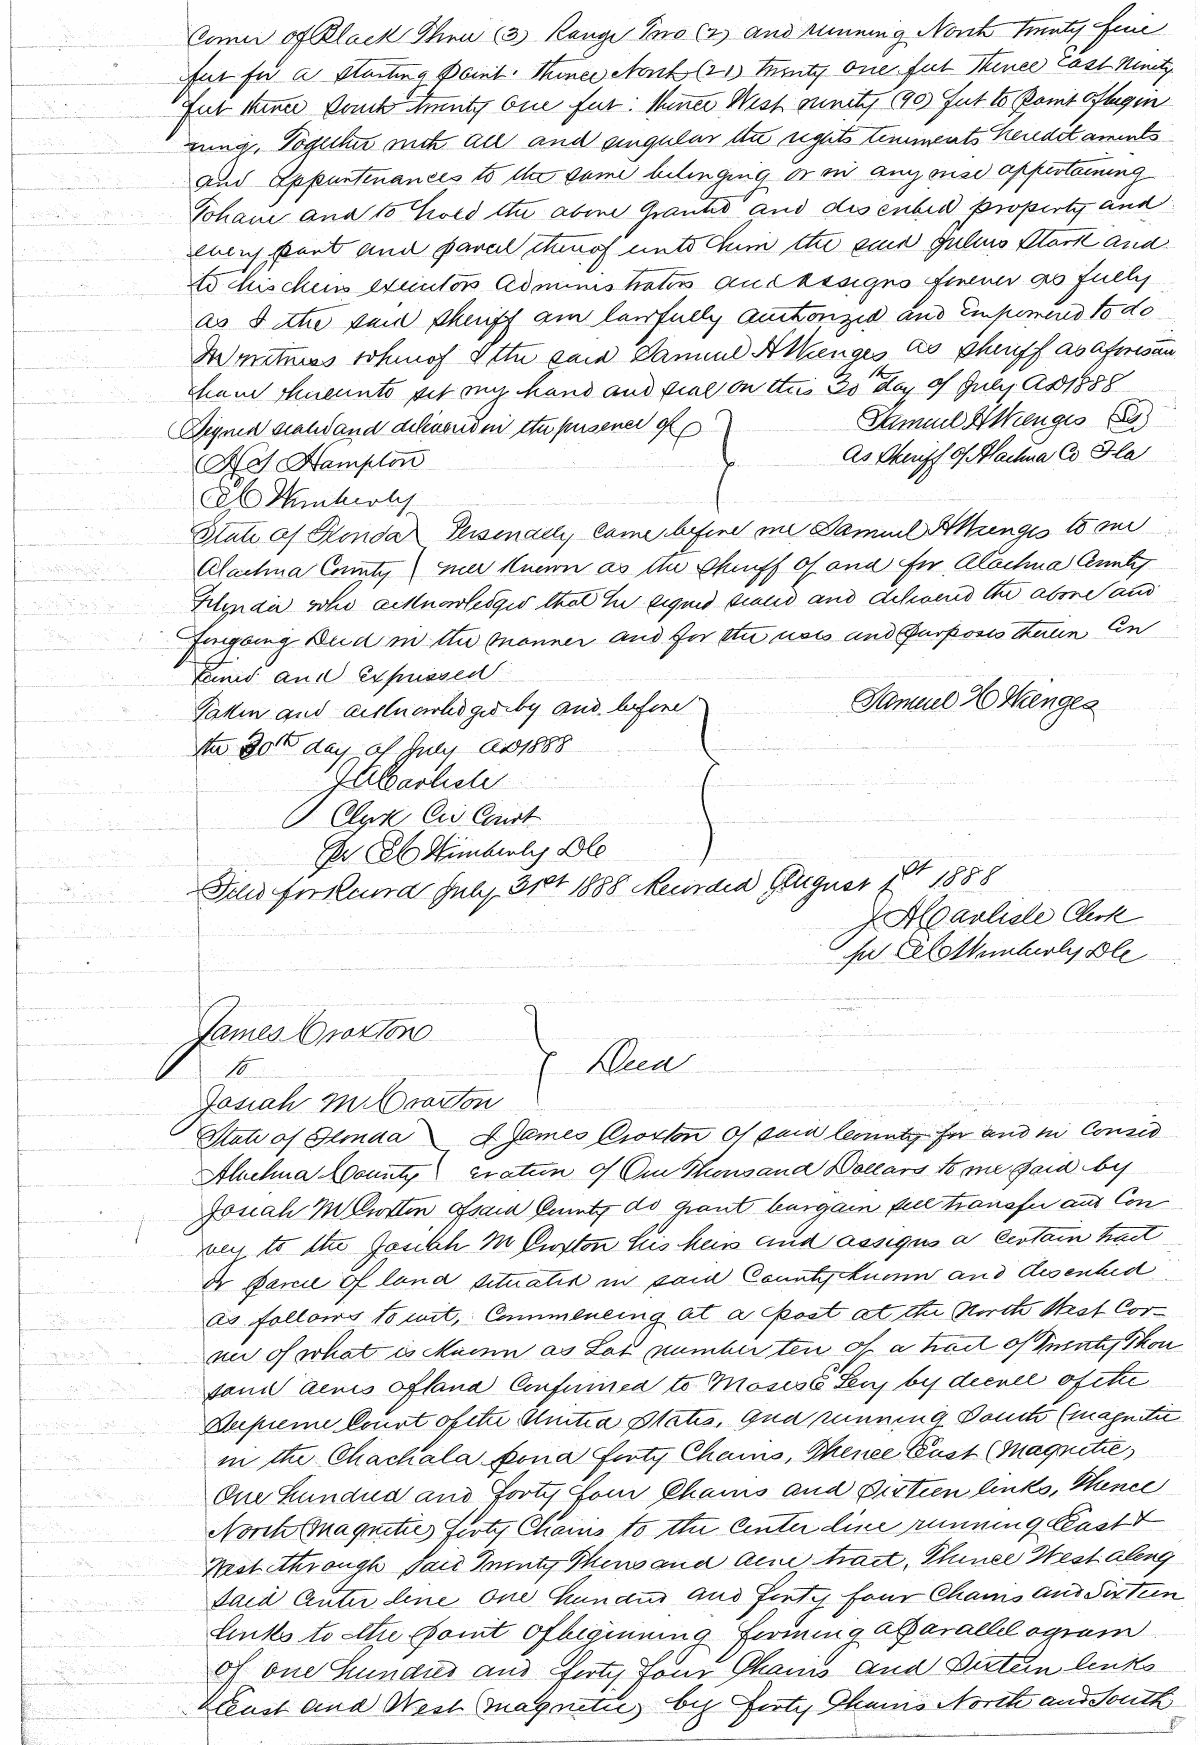 Corner of Block Three (3) Range Two (2) and running North twenty five
feet for a starting point. Thence North (21) twenty one feet Thence East Ninety
feet thence South twenty one feet: thence West ninety (90) feet to Point of begin
ning. Together with all and singular the rights tenements hereditaments
and appurtenances to the same belonging or in any wise appertaining
To have and to hold the above granted and described property and
every part and parcel thereof unto him the said Julius Stark and
to his heirs executors administrators and assigns forever as fully
as I the said Sheriff am lawfully authorized and Empowered to do
In witness whereof I the said Samuel H Wienges as Sheriff as aforesaid
have hereunto set my hand and seal on this 30th day of July AD 1888
Signed sealed and delivered in the presence of } Samuel H Wienges (LS)
H S Hampton As Sheriff of Alachua Co Fla
C C Wimberly
State of Florida } Personally came before me Samuel H Wienges to me
Alachua County } well known as the Sheriff of and for Alachua County
Florida who acknowledged that he signed sealed and delivered the above and
foregoing Deed in the manner and for the uses and purposes therein Con
tained and expressed
Taken and acknowledged by and before } Samuel H Wienges
the 30th day of July AD 1888
J A Carlisle
Clerk Cir Court
Per C C Wimberly D C
Filed for Record July 31st 1888 Recorded August 1st 1888
J A Carlisle Clerk
per C C Wimberly D C
James Croxton
to } Deed
Josiah M Croxton
State of Florida } I James Croxton of said County for and in Consid
Alachua County } eration of One Thousand Dollars to me paid by
Josiah M Croxton of said County do grant bargain sell transfer and Con
vey to the Josiah M Croxton his heirs and assigns a certain tract
or parcel of land situated in said County known and described
as follows to wit, Commencing at a post at the North West Cor-
ner of what is known as Lot number ten of a tract of Twenty Thou
sand acres of land Confirmed to Moses E Levy by decree of the
Supreme Court of the United States, and running South (magnetic
in the Chachala pond forty Chains, Thence East (Magnetic)
One hundred and forty four Chains and Sixteen links, Thence
North (Magnetic) forty Chains to the Center line running East &
West through said Twenty Thousand acre tract, Thence West along
said Center line one hundred and forty four Chains and Sixteen
links to the point of beginning forming a Parallelogram
of one hundred and forty four Chains and Sixteen links
East and West (magnetic) by forty Chains North and South